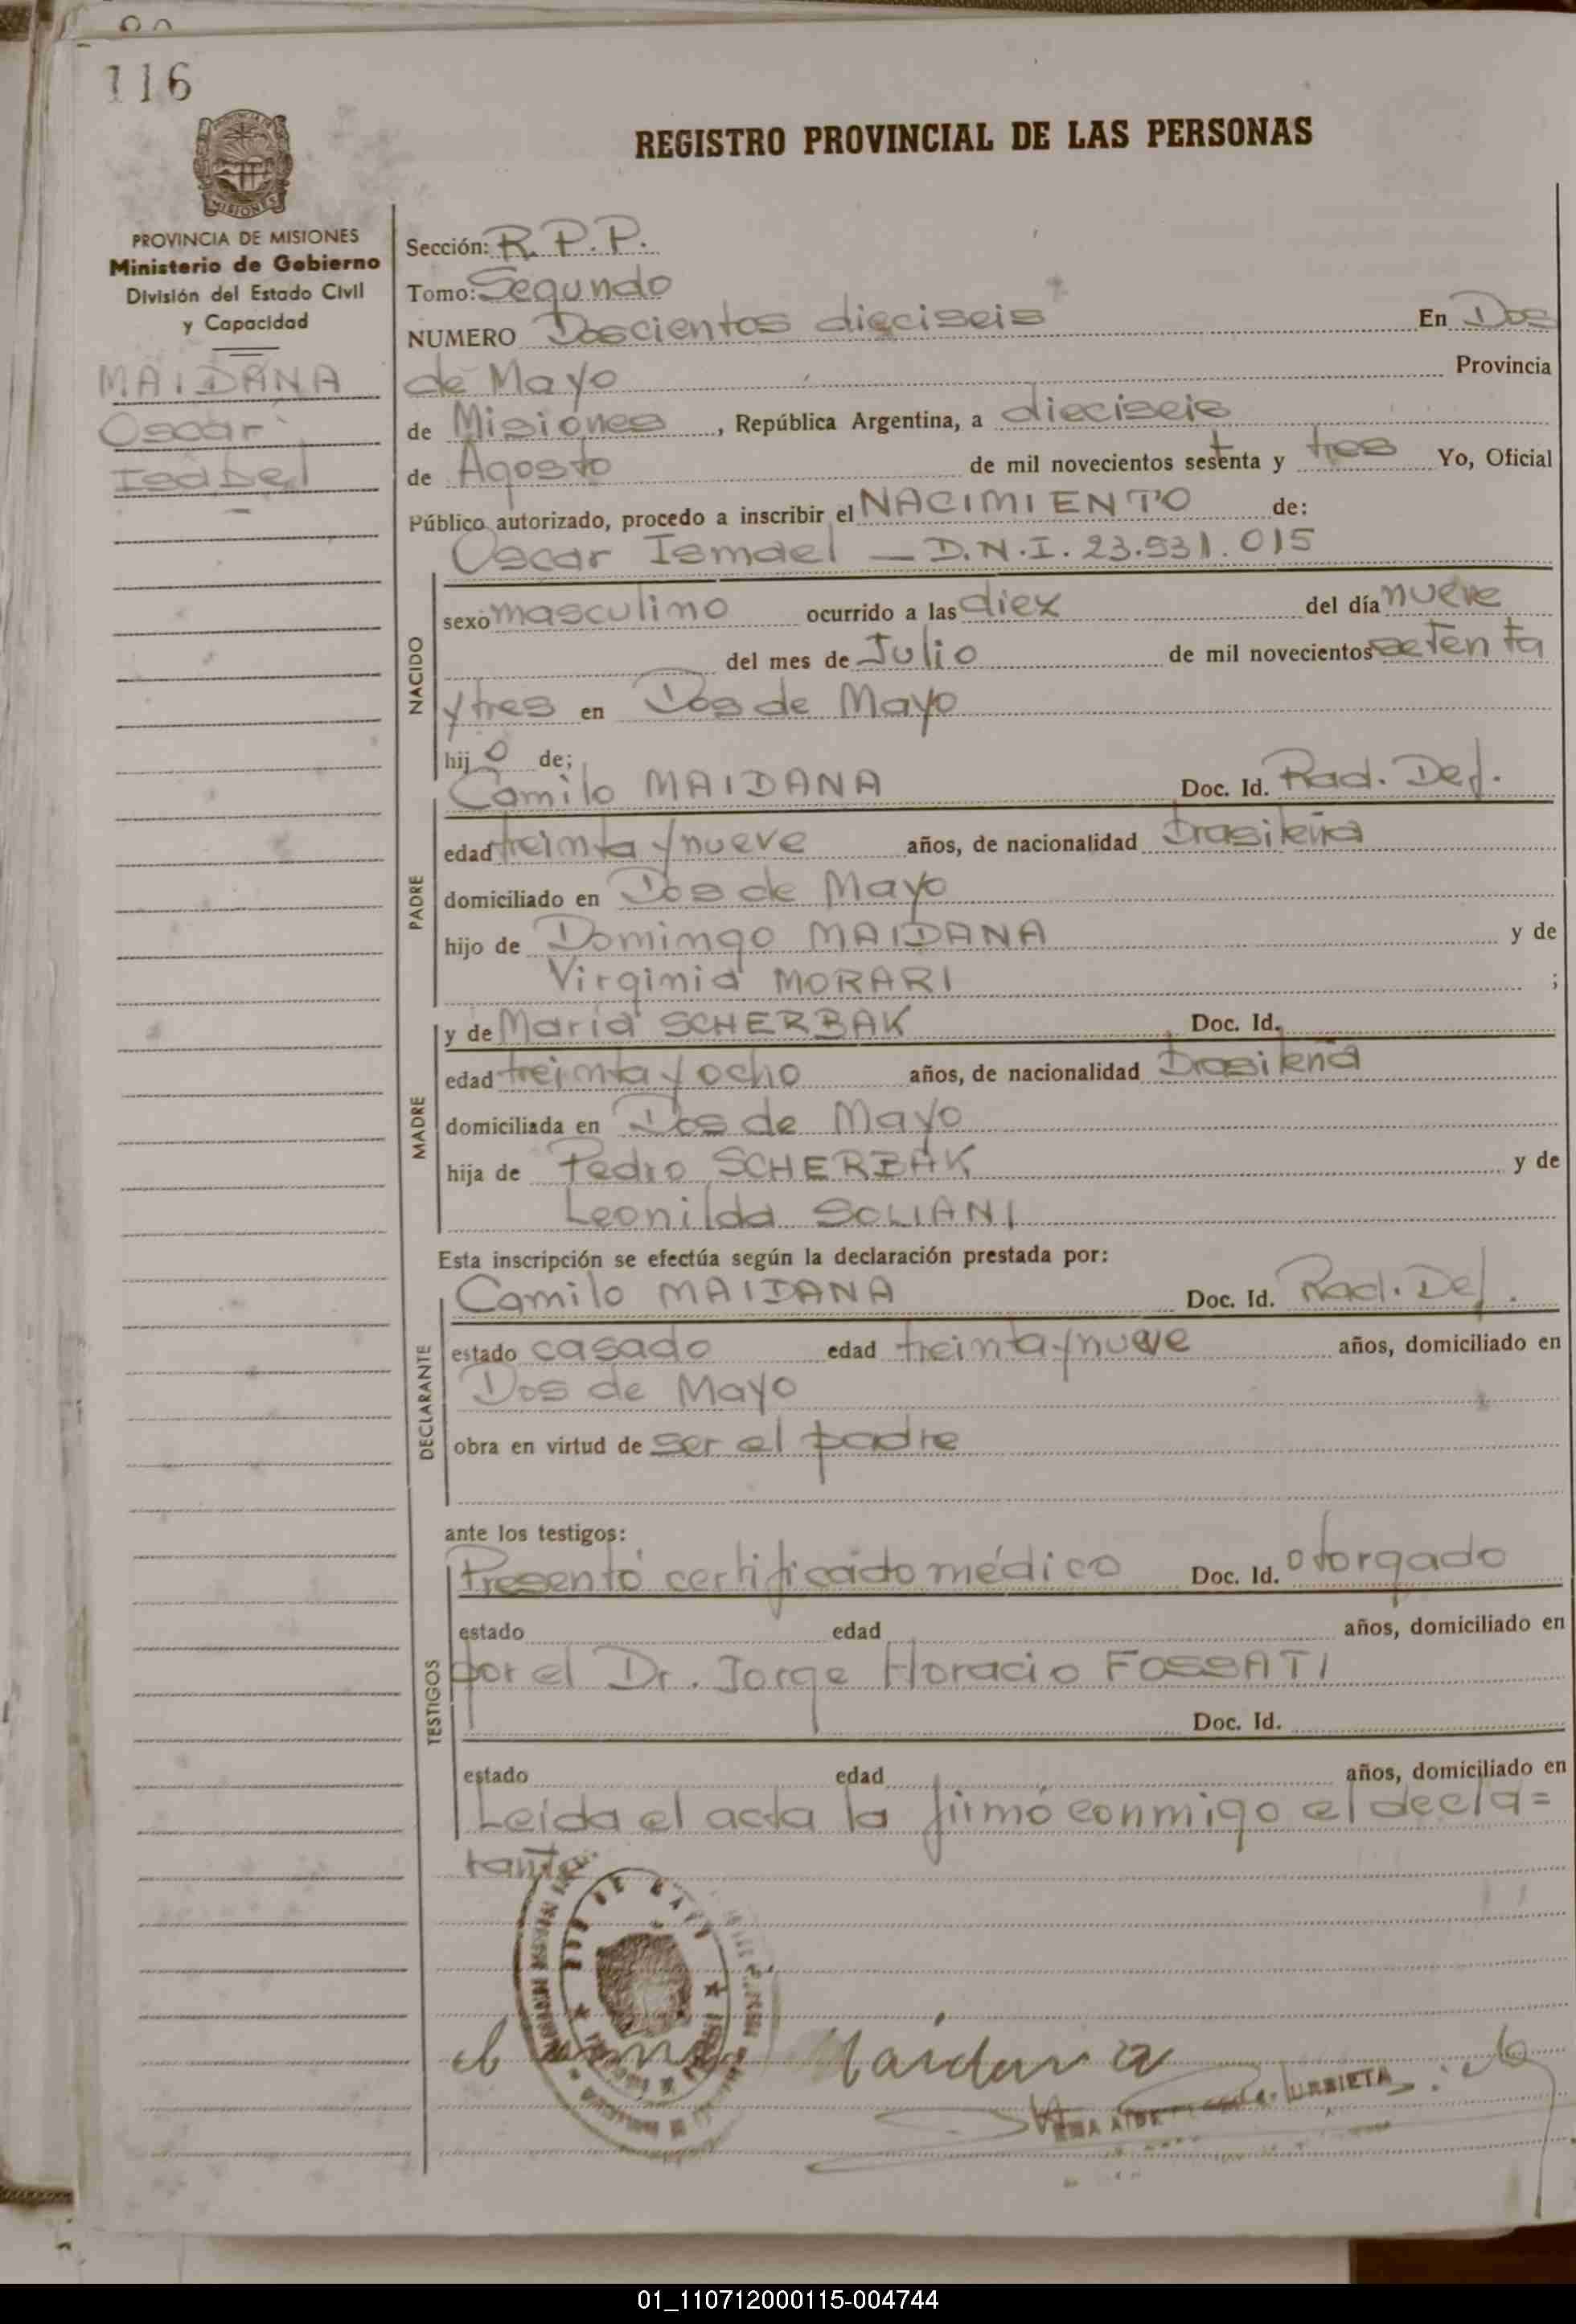 116
PROVINCIA DE MISIONES
Ministerio de Gobierno
División del Estado Civil
y Capacidad
MAIDANA
Oscar
REGISTRO PROVINCIAL DE LAS PERSONAS
Sección: R.P.P.
Tomo: Segundo
NUMERO Doscientos dieciseis En Dos
de Mayo Provincia
de Misiones, República Argentina, a dieciseis
de Agosto de mil novecientos setenta y tres Yo, Oficial
Público autorizado, procedo a inscribir el NACIMIENTO de:
Oscar Ismael — D.N.I. 23.931.015
NACIDO
sexo masculino ocurrido a las diez del día nueve
del mes de Julio de mil novecientos setenta
y tres en Dos de Mayo
hijo de;
PADRE
Camilo MAIDANA Doc. Id. Rad. Def.
edad treinta y nueve años, de nacionalidad brasileña
domiciliado en Dos de Mayo
hijo de Domingo MAIDANA y de
Virginia MORARI ;
MADRE
y de María SCHERBAK Doc. Id.
edad treinta y ocho años, de nacionalidad brasileña
domiciliada en Dos de Mayo
hija de Pedro SCHERBAK y de
Leonilda SOLIANI
Esta inscripción se efectúa según la declaración prestada por:
DECLARANTE
Camilo MAIDANA Doc. Id. Rad. Def.
estado casado edad treinta y nueve años, domiciliado en
Dos de Mayo
obra en virtud de ser el padre
ante los testigos:
TESTIGOS
Presentó certificado médico Doc. Id. otorgado
estado edad años, domiciliado en
por el Dr. Jorge Horacio FOSSATI
Doc. Id.
estado edad años, domiciliado en
Leída el acta la firmó conmigo el decla=
rante.
Maidana
URBIETA
01_110712000115-004744